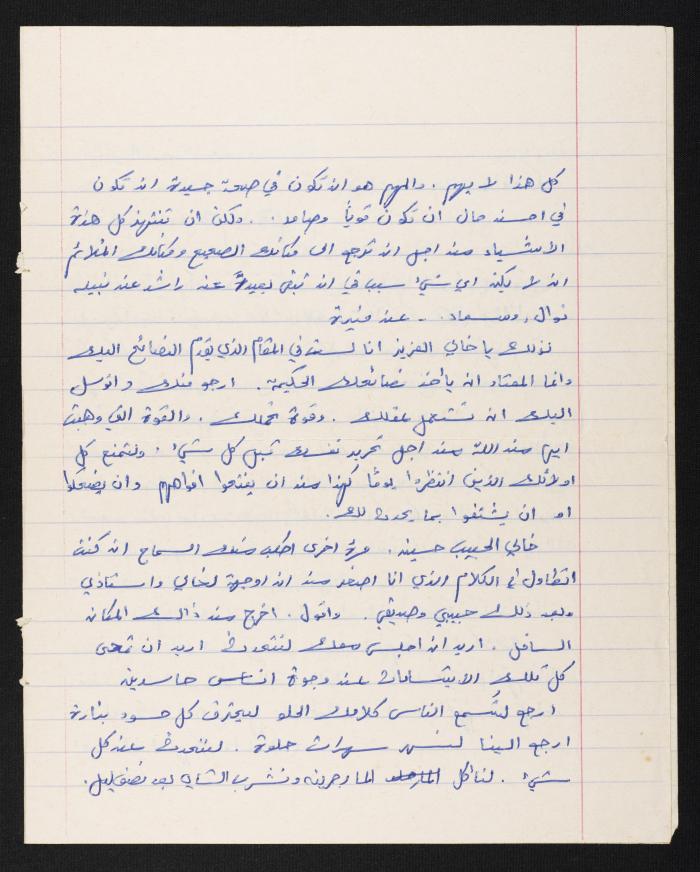 كل هذا لا يهم . والمهم هو ان تكون في صحة جيدة ان تكون
في احسن حال ان تكون قوياً وصامد . ولكن ان تنتهز كل هذة
الأشياء من اجل ان ترجع الى مكانك الصحيح ومكانك الملائم
ان لا يكن اي شيء سبب في ان تبقى بعيداً عن راشد عن نبيله
نوال ، وسعاد . - عن منيرة
يا خالي العزيز انا لست في المقام الذي يقدم النصائح اليك
وانما المعتاد ان يأخذ نصائحك الحكيمة . ارجو منك واتوسل
اليك ان تستعمل عقلك . وقوة تحملك . والقوة التي وهبت
من الله من اجل تحرير نفسك قبل كل شيء . ولتمنع كل
اولائك الذين انتظروا يوماً كهذا من ان يفتحوا افواههم وان يضحكوا
او ان يشتفوا بما يحدث لك .
خالي الحبيب حسين . مرة اخرى اطلب منك السماح ان كنت
اتطاول في الكلام الذي انا اصغر من ان اوجهة لخالي واستاذي
وبعد ذلك حبيبي وصديقي . واقول . اخرج من ذالك المكان
السافل . اريد ان اجلس معك لنتحدث اريد ان تمحى
كل تلك الابتسامات عن وجوة اناس حاسدين
ارجع لتُسمع الناس كلامك الحلو ليحترق كل حسود بنارة
ارجع الينا لنسهر سهرات حلوة . لنتحدث عن كل
شيء . لنأكل المارجرينه ونشرب الشاي بعد نصف ليل .